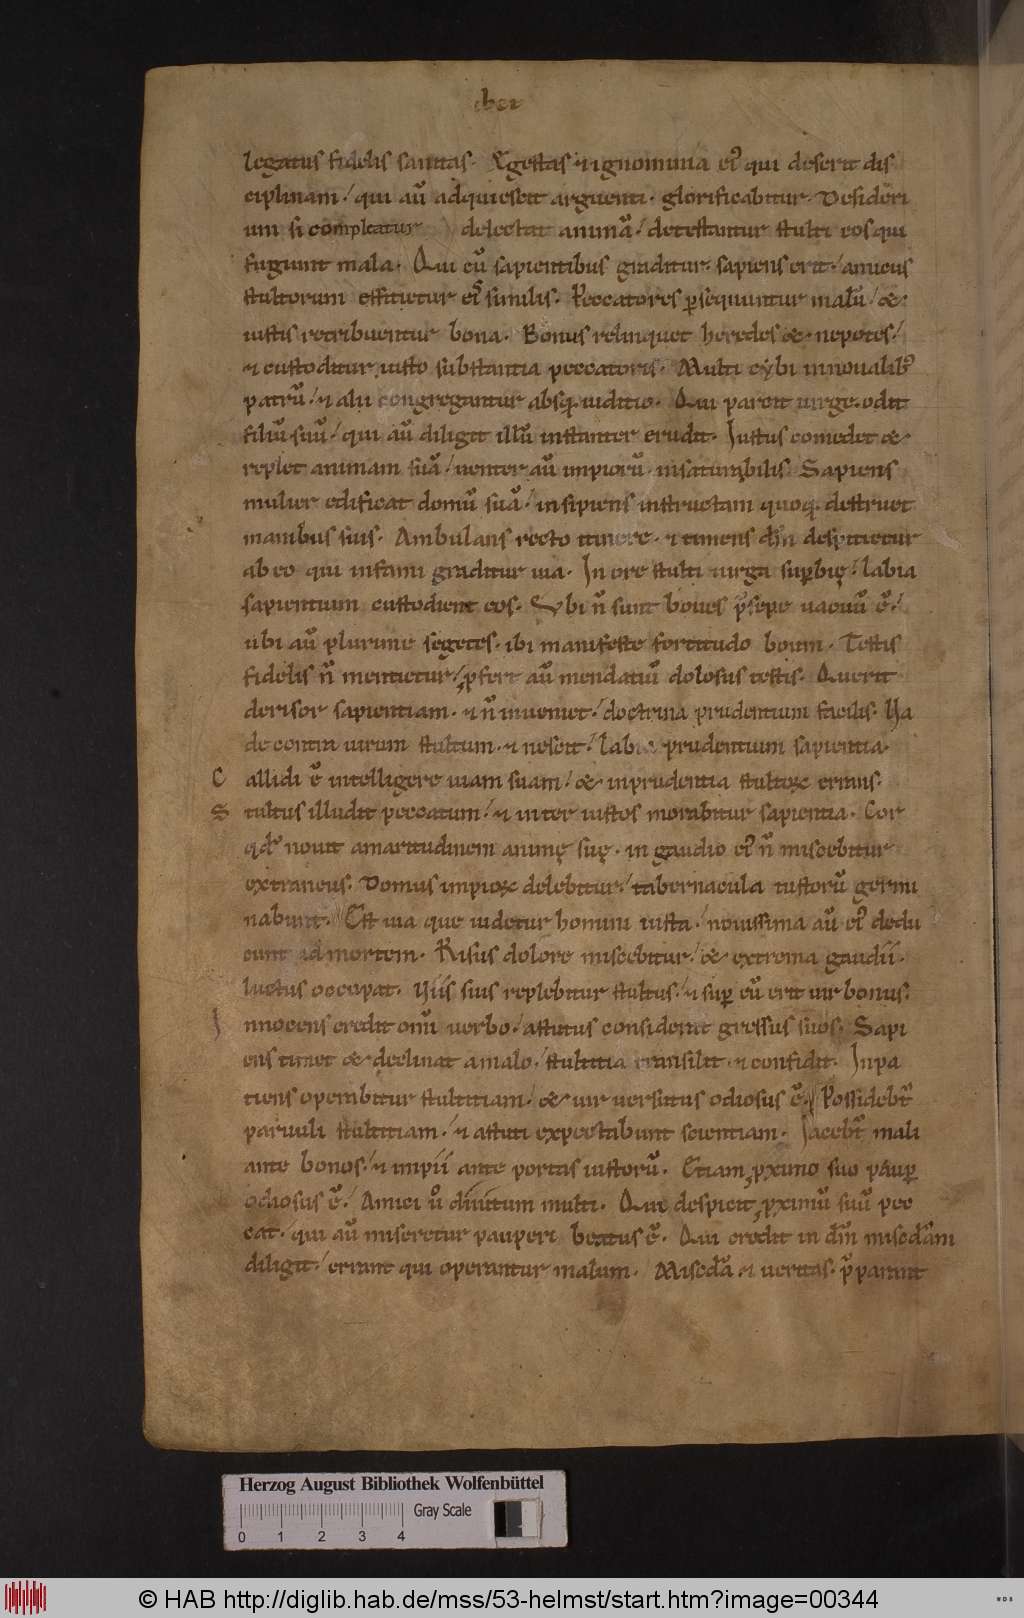 legatus fidelis sanitas. Egestas ⁊ ignominia eiꝰ qui deserit dis
ciplinam / qui aū adquiescit arguenti. glorificabitur. Desideri
um si compleatur delectat animā / detestantur stulti eos qui
fugiunt mala. Qui cū sapientibus graditur. sapiens erit / amicus
stultorum efficietur eiꝰ similis. Peccatores p̱sequuntur malū / &
iustis retribuentur bona. Bonus relinquet heredes & nepotes /
⁊ custoditur iusto substantia peccatoris. Multi cybi in noualibꝰ
patrū / ⁊ alii congregantur absq. iuditio. Qui parcit uirge. odit
filiū suū / qui aū diligit illū instanter erudit. Iustus comedet &
replet animam suā / uenter aū impiorū. insaturabilis. Sapiens
mulier edificat domū suā / insipiens instructam quoq. destruet
manibus suis. Ambulans recto itinere. ⁊ timens dm̄ despicietur
ab eo qui infami graditur uia. In ore stulti uirga sup̱bię / labia
sapientium custodient eos. Ubi n̄ sunt boues p̄sepe uacuū ē /
ubi aū plurime segetes. ibi manifeste fortitudo boum. Testis
fidelis n̄ mentietur / ꝓfert aū mendatiū dolosus testis. Querit
derisor sapientiam. ⁊ n̄ inueniet / doctrina prudentium facilis. Ua
de contra uirum stultum. ⁊ nescit / labia prudentium sapientia.
C allidi ē intelligere uiam suam / & inprudentia stultoꝝ errans.
S tultus illudit peccatum / ⁊ inter iustos morabitur sapientia. Cor
qd̄ nouit amaritudinem animę suę. in gaudio eiꝰ n̄ miscebitur
extraneus. Domus impioꝝ delebitur / tabernacula iustorū germi
nabunt. Est uia que uidetur homini iusta / nouissima aū eiꝰ dedu
cunt ad mortem. Risus dolore miscebitur / & extrema gaudii.
luctus occupat. Uiis suis replebitur stultus / ⁊ sup̱ eū erit uir bonus.
I nnocens credit om̄i uerbo / astutus considerat gressus suos. Sapi
ens timet & declinat a malo / stultitia transilit. ⁊ confidit. Inpa
tiens operabitur stultitiam / & uir uersutus odiosus ē. Possidebt̄
paruuli stultitiam / ⁊ astuti expectabunt scientiam. Iacebt̄ mali
ante bonos / ⁊ impii ante portas iustorū. Etiam ꝓximo suo paup̱
odiosus ē / Amici u̇ diuitum multi. Qui despicit ꝓximū suū pec
cat / qui aū miseretur pauperi beatus ē. Qui credit in dm̄ miscd̄iam
diligit / errant qui operantur malum. Miscd̄a ⁊ ueritas. p̄parant
Herzog August Bibliothek Wolfenbüttel
Gray Scale
0 1 2 3 4
© HAB http://diglib.hab.de/mss/53-helmst/start.htm?image=00344